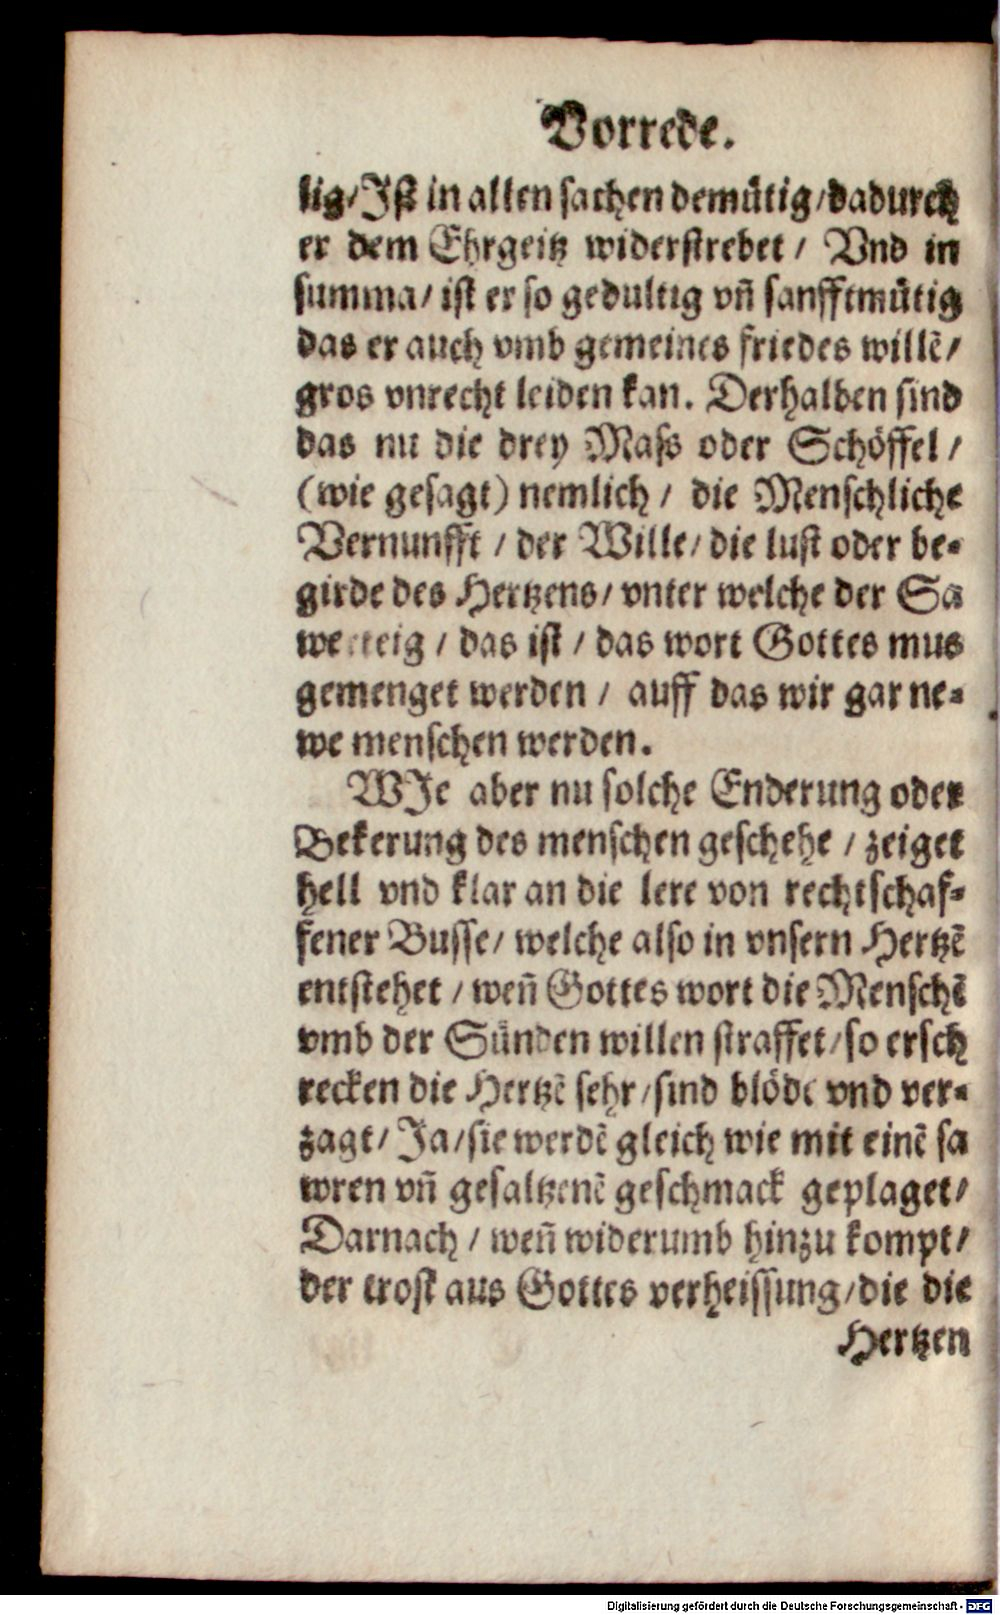 Vorrede.
lig/Ist in allen sachen demütig/dadurch
er dem Ehrgeitz widerstrebet / Vnd in
summa/ ist er so gedultig vñ sanfftmütig
das er auch vmb gemeines friedes willē/
gros vnrecht leiden kan. Derhalben sind
das nu die drey Mass oder Schöffel /
(wie gesagt) nemlich / die Menschliche
Vernunfft / der Wille/ die lust oder be-
girde des Hertzens/ vnter welche der Sa
werteig / das ist / das wort Gottes mus
gemenget werden / auff das wir gar ne-
we menschen werden.
WIe aber nu solche Enderung oder
Bekerung des menschen geschehe / zeiget
hell vnd klar an die lere von rechtschaf-
fener Busse/ welche also in vnsern Hertzē
entstehet / weñ Gottes wort die Menschē
vmb der Sünden willen straffet/so ersch
recken die Hertzē sehr/sind blöde vnd ver-
zagt/ Ja/sie werdē gleich wie mit einē sa
wren vñ gesaltzenē geschmack geplaget/
Darnach / weñ widerumb hinzu kompt/
der trost aus Gottes verheissung/die die
Hertzen
Digitalisierung gefördert durch die Deutsche Forschungsgemeinschaft - DFG